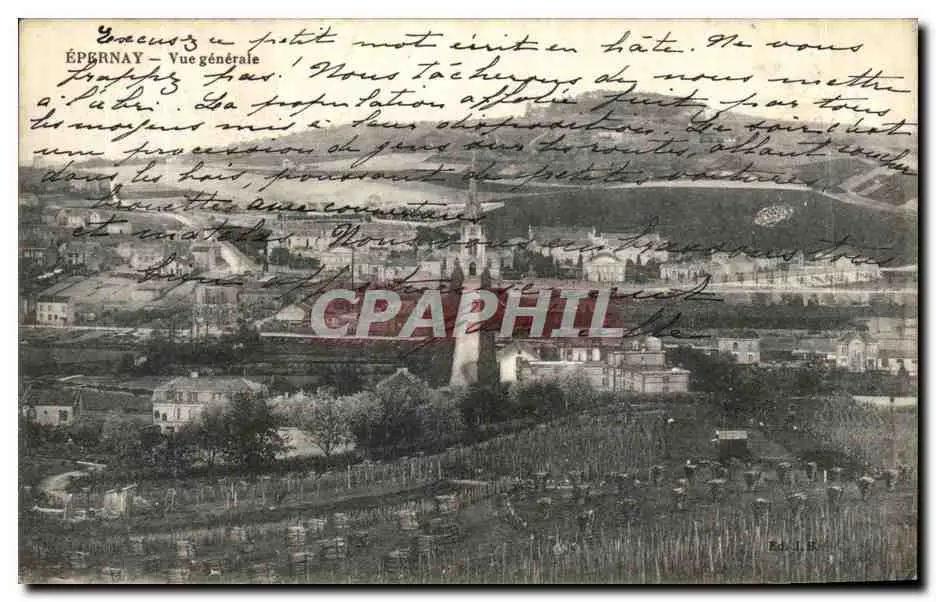 Excusez ce petit mot écrit en hâte. Ne vous
ÉPERNAY — Vue générale
frappez pas! Nous tâcherons de nous mettre
à l'abri. La population affolée fuit par tous
les moyens mis à leur disposition. Le soir c'est
une procession de gens sur les routes, allant coucher
dans les bois, poussant de petites voitures,
brouettes avec couvertures
et matelas. Nous vous embrassons tous
CPAPHIL
Ed. J. B.